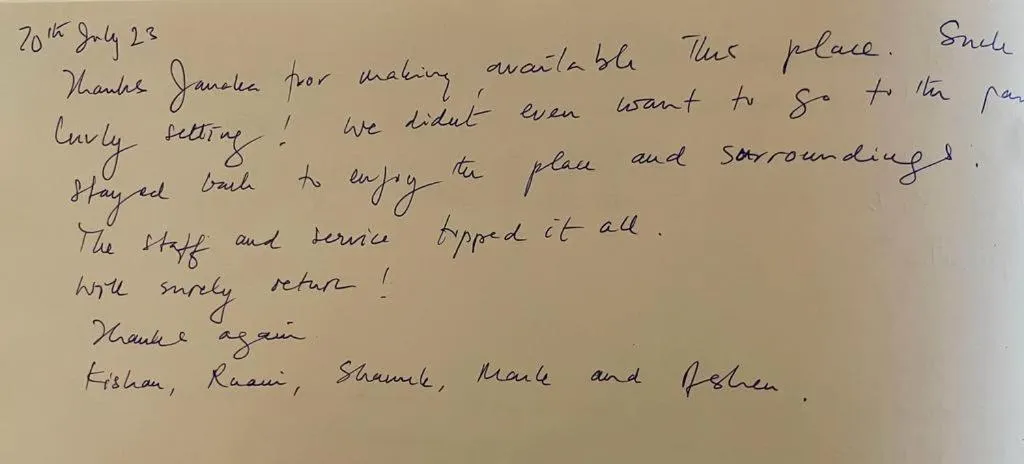 20th July 23
Thanks Janaka for making available this place. Such
lovely setting! We didn't even want to go to the
stayed back to enjoy the place and surroundings.
The staff and service topped it all.
Will surely return!
Thanks again
Kishan, Mark and Ashen.